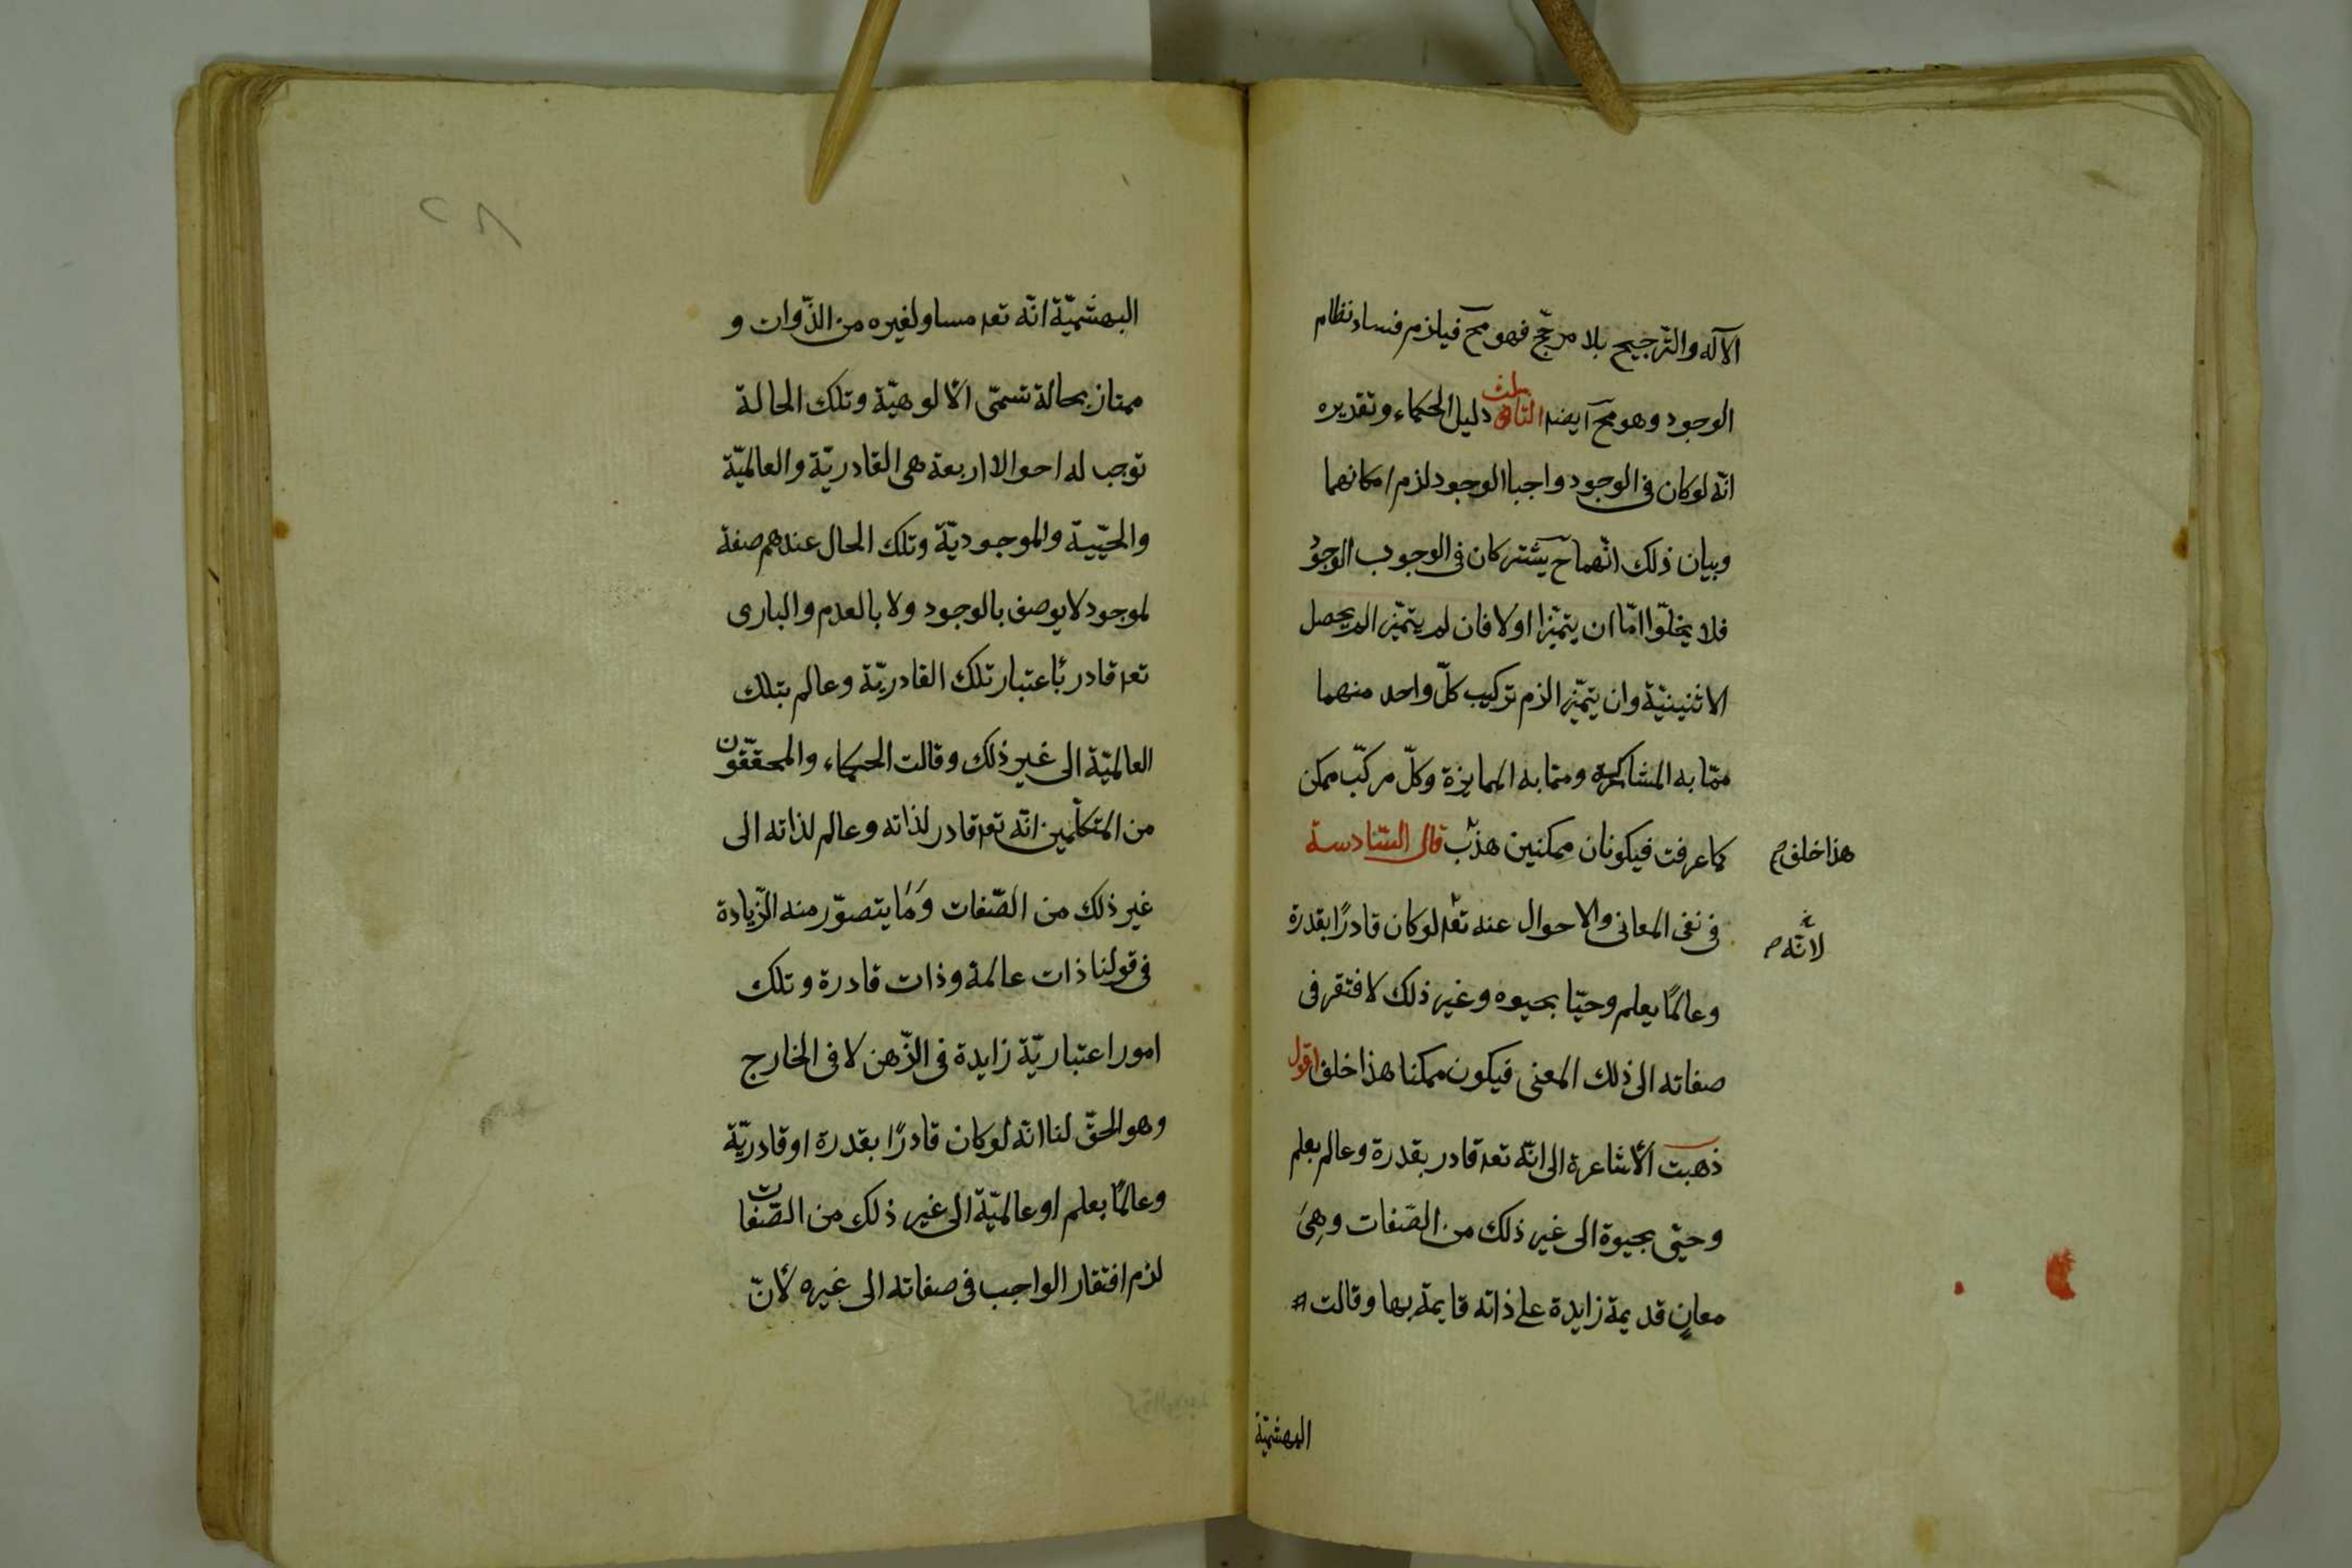 الآله والترجيح بلا مرجّح فهو محّ فيلزم فساد نظام
الوجود وهو محّ ايضا الثالث دليل الحكماء وتقديره
انّه لو كان فى الوجود واجبا الوجود لزم امكانهما
وبيان ذلك انّهما ح يشتركان فى الوجوب الوجود
فلا يخلّوا امّا ان يتميّزا اولا فان لم يتميّزا لم يحصل
الاثنينيّة وان يتميّزا لزم تركيب كلّ واحد منهما
ممّا به المشاركة وممّا به الممايزة وكلّ مركّب ممكن
كما عرفت فيكونان ممكنين هذب قال السّادسة
هذا خلف
فى نفى المعانى والاحوال عنه تعه لو كان قادرًا بقدرة
لانّه
وعالمًا بعلم وحيّا بحيوه وغير ذلك لافتقر فى
صفاته الى ذلك المعنى فيكون ممكنا هذا خلف اقول
ذهبت الأشاعرة الى انّه تعه قادر بقدرة وعالم بعلم
وحيّى بحيوة الى غير ذلك من الصّفات وهِىَ
معانٍ قديمة زايدة على ذاته قايمة بها وقالت
البهشميّة
٢٨
البهشميّة انّه تعه مساو لغيره من الذّوات و
ممتاز بحالة تسمّى الألوهيّة وتلك الحالة
توجب له احوالا اربعة هى القادريّة والعالميّة
والحيّيية والموجوديّة وتلك الحال عندهم صفة
لموجود لا يوصف بالوجود ولا بالعدم والبارى
تعه قادر بأعتبار تلك القادريّة وعالم بتلك
العالميّة الى غير ذلك وقالت الحكماء والمحقّقون
من المتكلّمين انّه تعه قادر لذاته وعالم لذاته الى
غير ذلك من الصّفات وَمَا يتصوّر منه الزّيادة
فى قولنا ذات عالمة وذات قادرة وتلك
امور اعتباريّة زايدة فى الذّهن لا فى الخارج
وهو الحقّ لنا انّه لو كان قادرًا بقدرة او قادريّة
وعالمًا بعلم او عالميّة الى غير ذلك من الصّفات
لزم افتقار الواجب فى صفاته الى غيره لأنّ